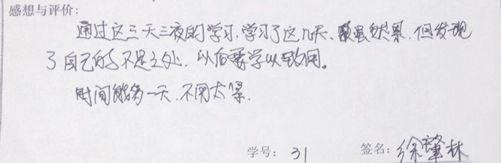 感想与评价:
通过这三天三夜的学习,学习了这几天、虽然累,但发现
了自己的不足之处,以后要学以致用。
时间能够一天、不用太累。
学号: 31 签名: 徐肇林